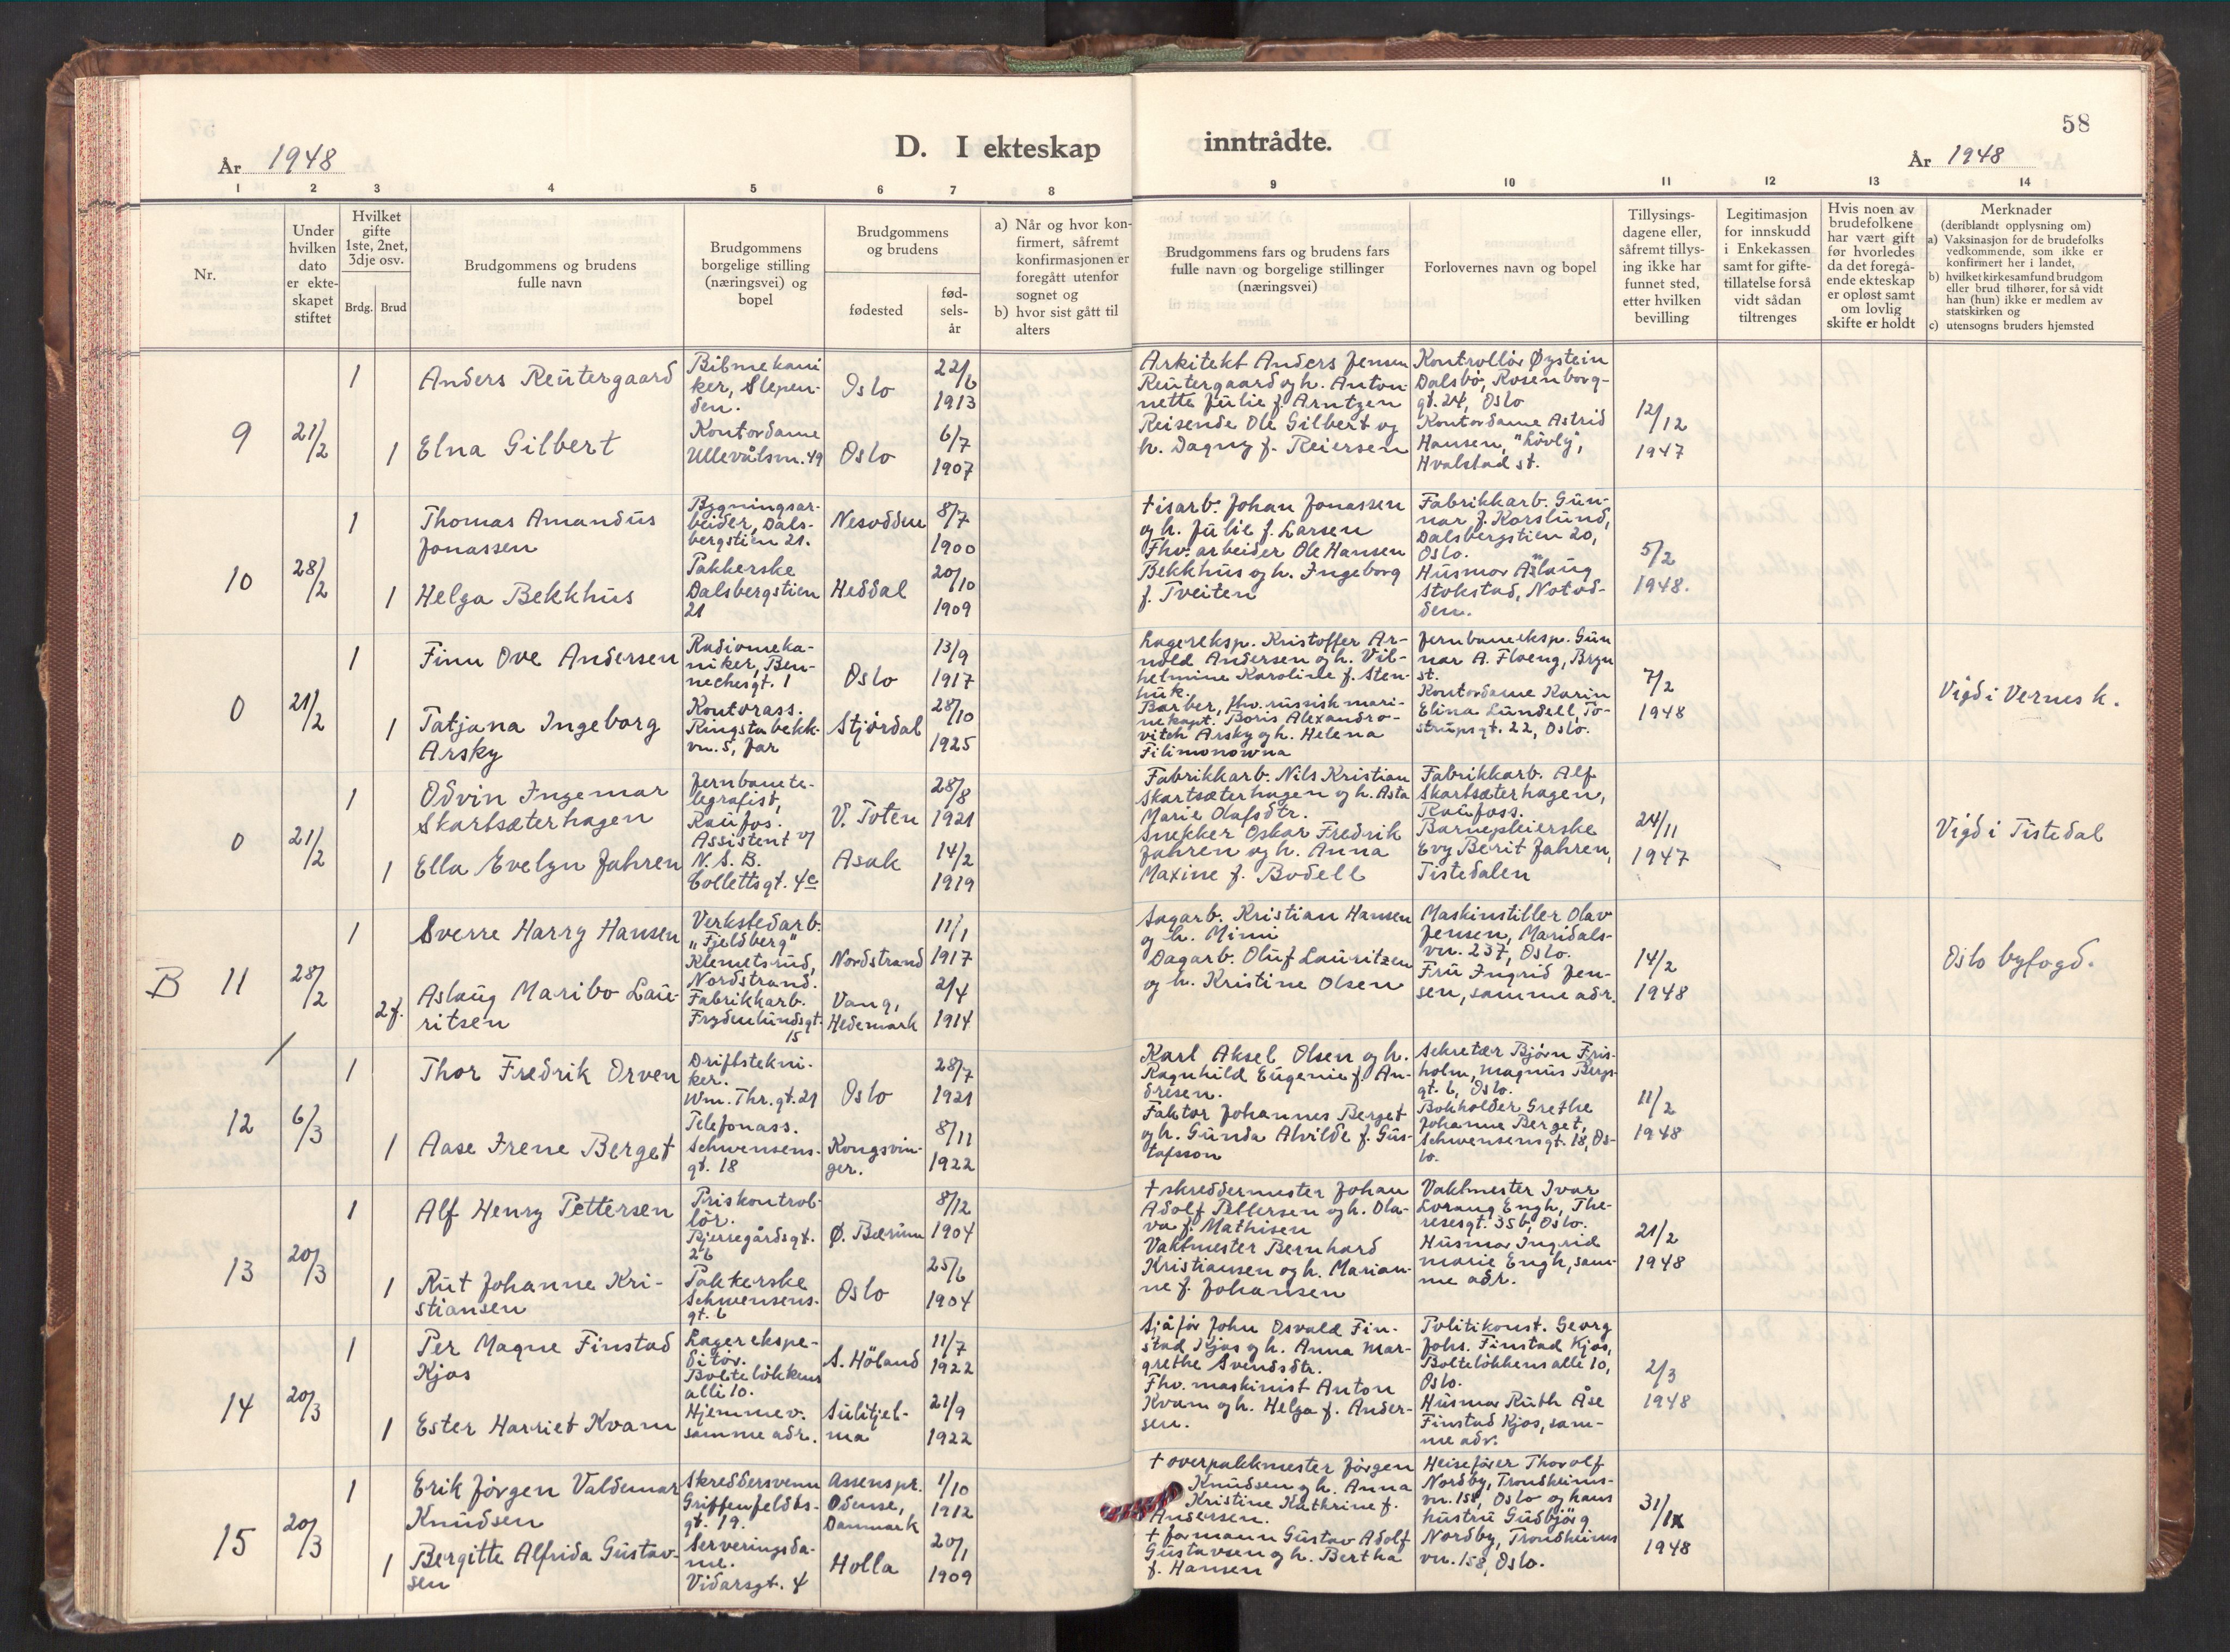 58
År 1948
D. I ekteskap
inntrådte.
År 1948
1 2 3 4 5 6 7 8
9 10 11 12 13 14
Nr.
Under
hvilken
dato
er ekte-
skapet
stiftet
Hvilket
gifte
1ste, 2net,
3dje osv.
Brdg.
Brud
Brudgommens og brudens
fulle navn
Brudgommens
borgelige stilling
(næringsvei) og
bopel
Brudgommens
og brudens
fødested
fød-
sels-
år
a) Når og hvor kon-
firmert, såfremt
konfirmasjonen er
foregått utenfor
sognet og
b) hvor sist gått til
alters
Brudgommens fars og brudens fars
fulle navn og borgelige stillinger
(næringsvei)
Forlovernes navn og bopel
Tillysings-
dagene eller,
såfremt tillys-
ing ikke har
funnet sted,
etter hvilken
bevilling
Legitimasjon
for innskudd
i Enkekassen
samt for gifte-
tillatelse for så
vidt sådan
tiltrenges
Hvis noen av
brudefolkene
har vært gift
før hvorledes
da det foregå-
ende ekteskap
er opløst samt
om lovlig
skifte er holdt
Merknader
(deriblandt opplysning om)
a) Vaksinasjon for de brudefolks
vedkommende, som ikke er
konfirmert her i landet,
b) hvilket kirkesamfund brudgom
eller brud tilhører, for så vidt
han (hun) ikke er medlem av
statskirken og
c) utensogns bruders hjemsted
9
21/2
1
Anders Reutergaard
Bilmekani
ker, Slepen-
den.
Oslo
22/6
1913
1
Elna Gilbert
Kontordame
Ullevålsvn. 49
Oslo
6/7
1907
Arkitekt Anders Jensen
Reutergaard og h. Anton-
nette Julie f. Arntzen
Reisende Ole Gilbert og
h. Dagny f. Reiersen
Kontrollør Øystein
Dalsbø, Rosenborg-
gt. 24, Oslo
Kontordame Astrid
Hansen, "Løvly",
Hvalstad st.
12/12
1947
10
28/2
1
Thomas Amandus
Jonassen
Bygningsar-
beider, Dals-
bergstien 21.
Nesodden
8/7
1900
1
Helga Bekkhus
Pakkerske
Dalsbergstien
21
Heddal
20/10
1909
† isarb. Johan Jonassen
og h. Julie f. Larsen
Fhv. arbeider Ole Hansen
Bekkhus og h. Ingeborg
f. Tveiten
Fabrikkarb. Gun-
nar J. Korslund,
Dalsbergstien 20,
Oslo.
Husmor Aslaug
Stokstad, Notod-
den.
5/2
1948.
0
21/2
1
Finn Ove Andersen
Radiomeka-
niker, Ben-
nechesgt. 1
Oslo
13/9
1917
1
Tatjana Ingeborg
Arsky
Kontorass.
Ringstabekk-
vn. 5, Jar
Stjørdal
28/10
1925
Lagereksp. Kristoffer Ar-
nold Andersen og h. Vil-
helmine Karoline f. Sten-
huk.
Barber, fhv. russisk mari-
nekapt. Boris Alexandro-
vitch Arsky og h. Helena
Filimonowna
Jernbaneeksp. Gun
nar A. Floeng, Bryn
st.
Kontordame Karin
Elina Lundell, To-
strupsgt. 22, Oslo.
7/2
1948
Vigd i Vernes k.
0
21/2
1
Odvin Ingemar
Skartsæterhagen
Jernbanete-
legrafist,
Raufos.
V. Toten
28/8
1921
1
Ella Evelyn Jahren
Assistent v/
N. S. B.
Collettsgt. 4c
Asak
14/2
1919
Fabrikkarb. Nils Kristian
Skartsæterhagen og h. Asta
Marie Olafsdtr.
Snekker Oskar Fredrik
Jahren og h. Anna
Maxine f. Bodell
Fabrikkarb. Alf
Skartsæterhagen,
Raufoss.
Barnepleierske
Evy Berit Jahren,
Tistedalen
24/11
1947
Vigd i Tistedal
B 11
28/2
1
Sverre Harry Hansen
Verkstedarb.
"Fjeldberg"
Klemetsrud,
Nordstrand.
Nordstrand
11/1
1917
2 f.
Aslaug Maribo Lau-
ritsen
Fabrikkarb.
Frydenlundsgt.
15
Vang,
Hedemark
2/4
1914
Sagarb. Kristian Hansen
og h. Mimi
Dagarb. Oluf Lauritzen
og h. Kristine Olsen
Maskinstiller Olav
Jensen, Maridals-
vn. 237, Oslo.
Fru Ingrid Jen-
sen, samme adr.
14/2
1948
Oslo byfogd.
12
6/3
1
Thor Fredrik Orven
Driftstekni-
ker.
Wm. Thr. gt. 21
Oslo
28/7
1921
1
Aase Irene Berget
Telefonass.
Schwensens-
gt. 18
Kongsvin-
ger.
8/11
1922
Karl Aksel Olsen og h.
Ragnhild Eugenie f. An-
dresen.
Faktor Johannes Berget
og h. Gunda Alvilde f. Gus-
tafsson
Sekretær Bjørn Fris-
holm, Magnus Bergs-
gt. 6, Oslo.
Bokholder Grethe
Johanne Berget,
Schwensensgt. 18, Os-
lo.
11/2
1948
13
20/3
1
Alf Henry Pettersen
Priskontrol-
lør.
Bjerregårdsgt.
2b
Ø. Bærum
8/12
1904
1
Rut Johanne Kri-
stiansen
Pakkerske
Schwensens-
gt. 6
Oslo
25/6
1904
† skreddermester Johan
Adolf Pettersen og h. Ola-
va f. Mathisen
Vaktmester Bernhard
Kristiansen og h. Marian-
ne f. Johansen
Vaktmester Ivar
Lorang Engh, The-
resesgt. 35b, Oslo.
Husmor Ingrid
Marie Engh, sam-
me adr.
21/2
1948
14
20/3
1
Per Magne Finstad
Kjos
Lagerekspe-
ditør.
Bolteløkkens
alle 10.
S. Høland
11/7
1922
1
Ester Harriet Kvam
Hjemmev.
samme adr.
Sulitjel-
ma
21/9
1922
Sjåfør John Osvald Fin-
stad Kjos og h. Anna Mar-
grethe Svendsdtr.
Fhv. maskinist Anton
Kvam og h. Helga f. Ander-
sen.
Politikonst. Georg
Johs. Finstad Kjos,
Bolteløkkens alle 10,
Oslo.
Husmor Ruth Åse
Finstad Kjos, sam-
me adr.
2/3
1948
15
20/3
1
Erik Jørgen Valdemar
Knudsen
Skreddersvenn
Griffenfeldts-
gt. 19.
Assenspr.
Odense,
Danmark
1/10
1912
1
Bergitte Alfrida Gustav-
sen
Serveringsda-
me.
Vidarsgt. 4
Holla
20/1
1909
† overpakkmester Jørgen
Knudsen og h. Anna
Kristine Kathrine f.
Andersen.
† formann Gustav Adolf
Gustavsen og h. Bertha
f. Hansen
Heisefører Thorolf
Nordby, Trondheims-
vn. 158, Oslo og hans
hustru Gudbjørg
Nordby, Trondheims
vn. 158, Oslo.
31/1
1948